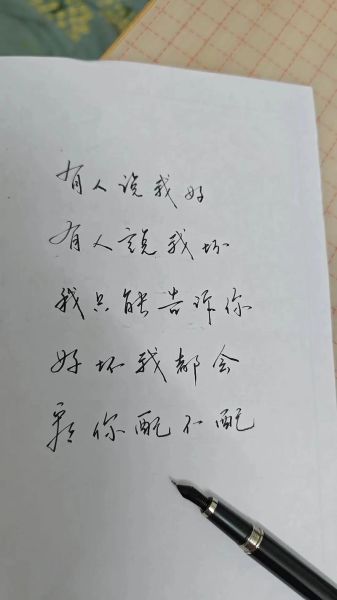 有人说我好
有人說我坏
我只能告诉你
好坏我都会
你配不配